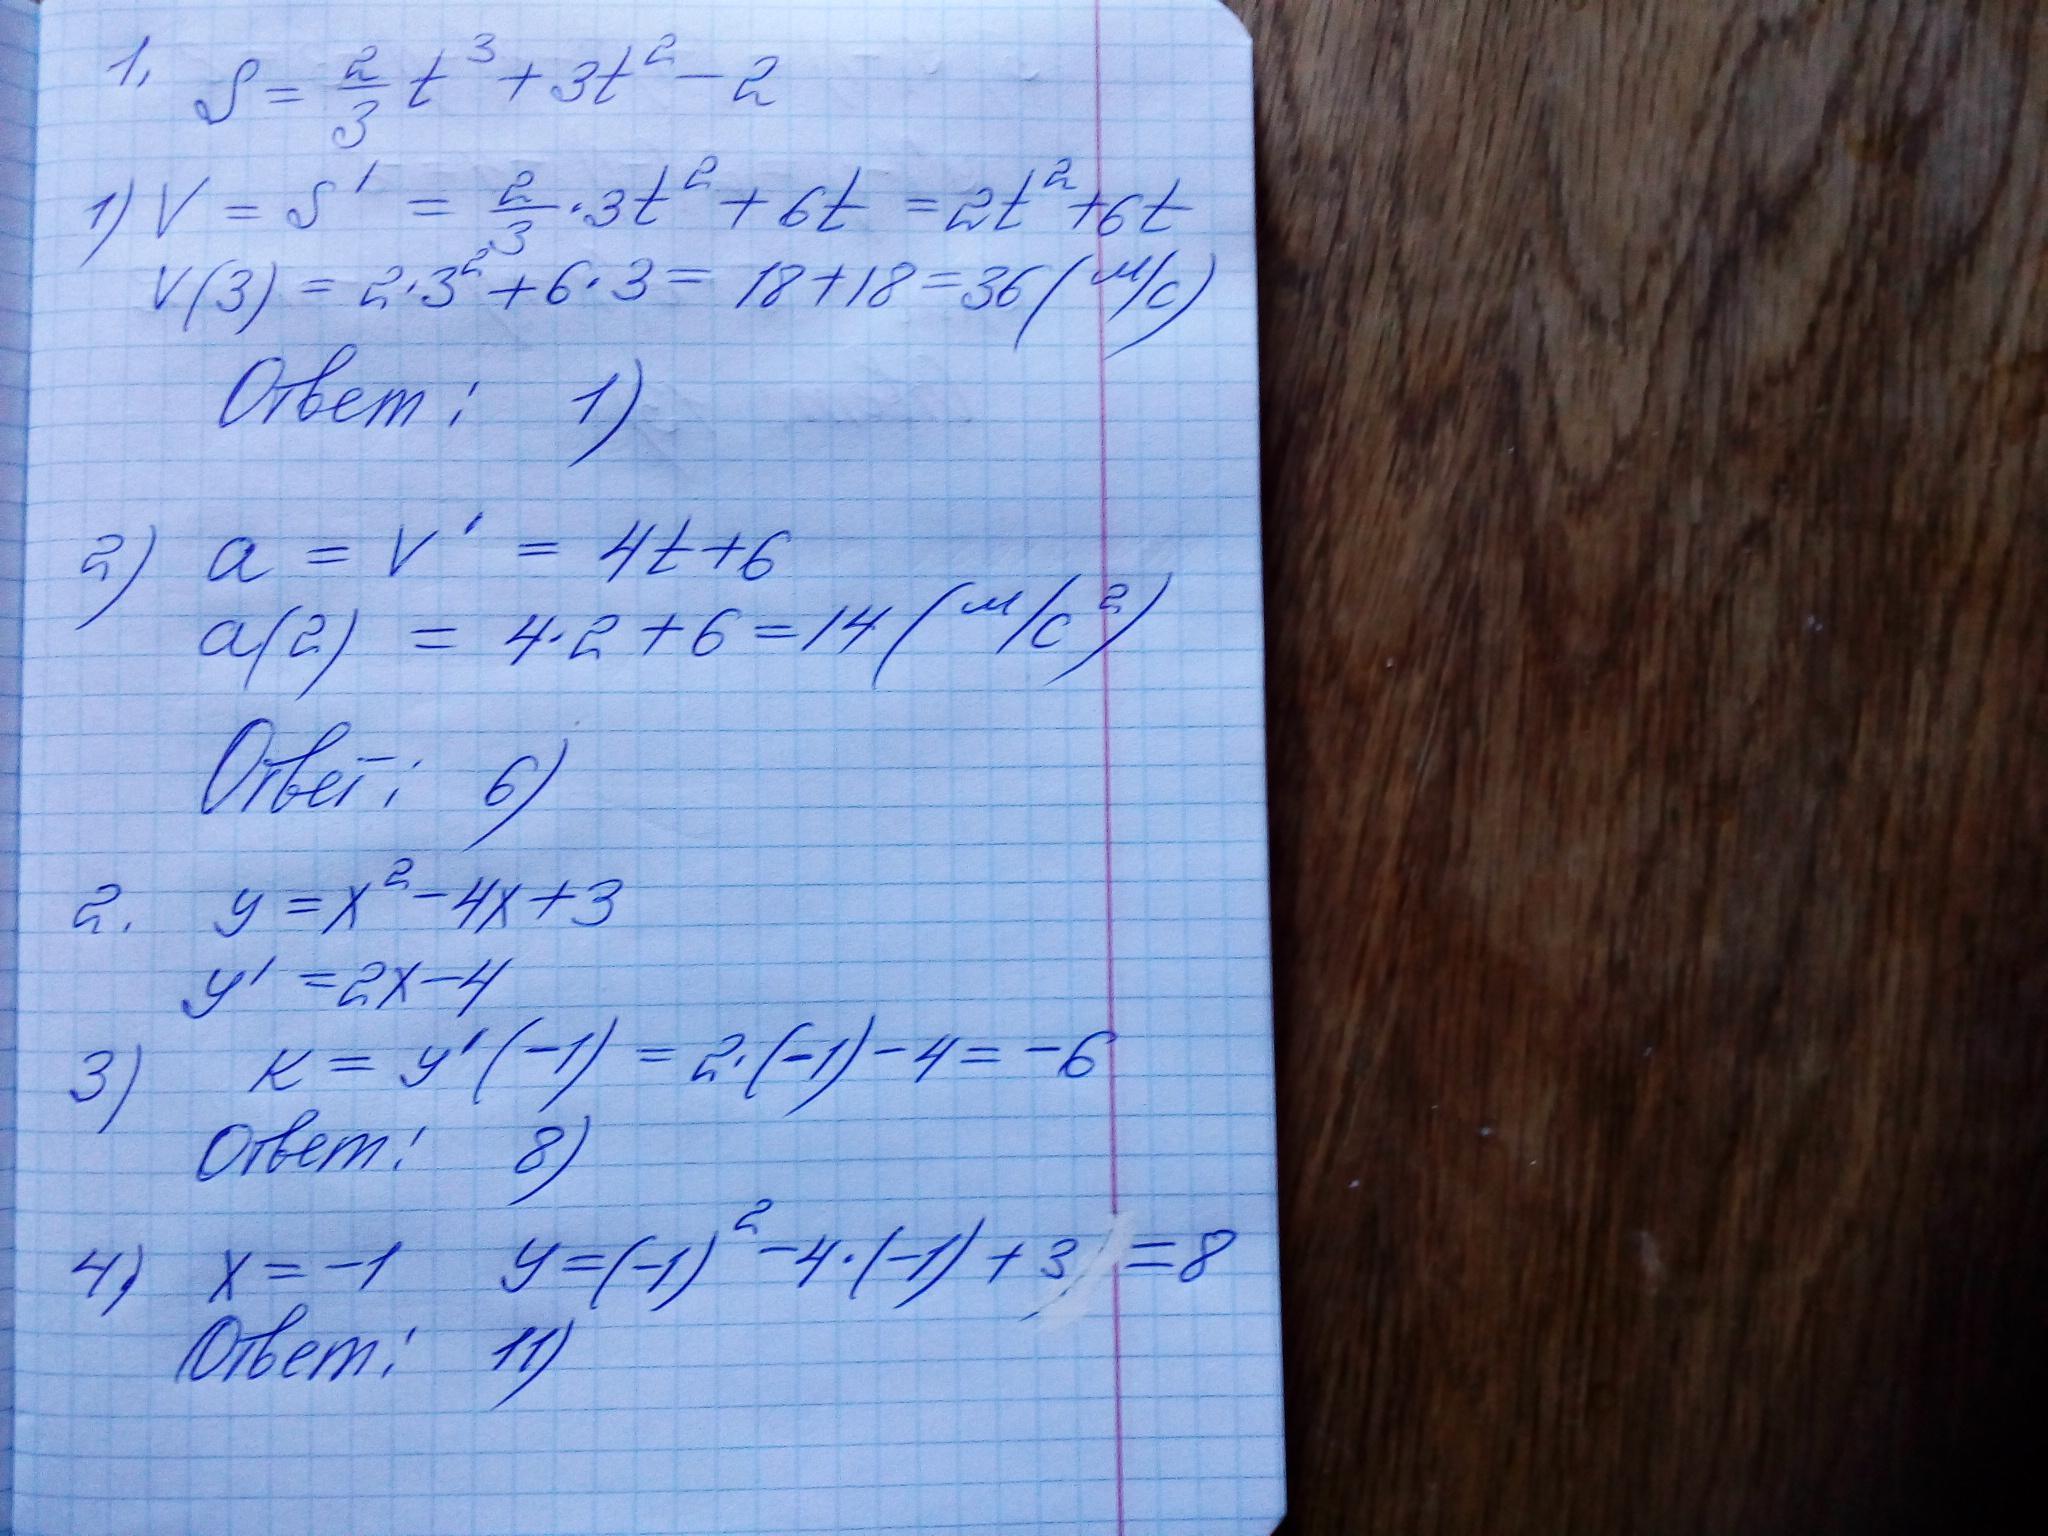 1. S = 2/3 t³ + 3t² - 2
1) V = S' = 2/3 · 3t² + 6t = 2t² + 6t
V(3) = 2·3² + 6·3 = 18 + 18 = 36 (м/с)
Ответ: 1)
2) a = V' = 4t + 6
a(2) = 4·2 + 6 = 14 (м/с²)
Ответ: 6)
2. y = x² - 4x + 3
y' = 2x - 4
3) к = y'(-1) = 2·(-1) - 4 = -6
Ответ: 8)
4) x = -1 y = (-1)² - 4·(-1) + 3 = 8
Ответ: 11)